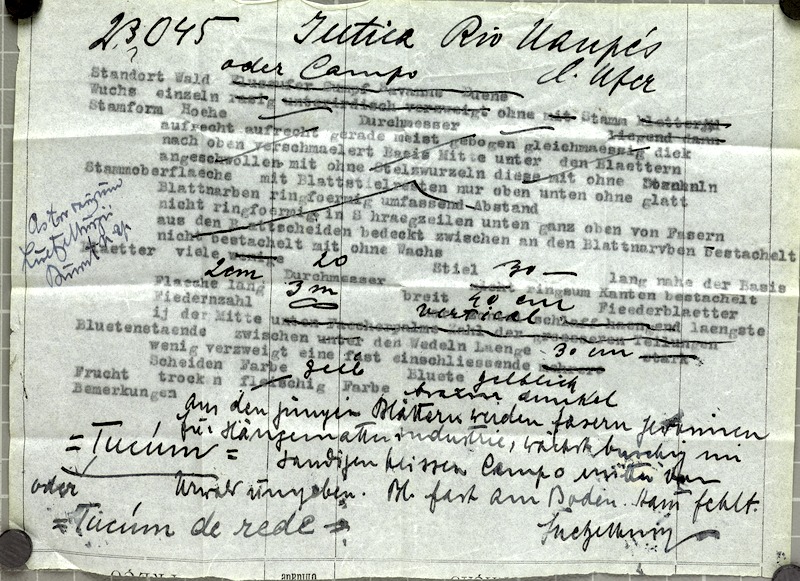 23045 Jutica Rio Uaupés
?
oder Campo l. Ufer
Standort Wald Flussufer Sumpf Savanne Duene
Wuchs einzeln rasig unterirdisch verzweigt ohne mit Stamm kletternd
Stammform Hoehe Durchmesser liegend dann
aufrecht aufrecht gerade meist gebogen gleichmaessig dick
nach oben verschmaelert Basis Mitte unter den Blaettern
angeschwollen mit ohne Stelzwurzeln diese mit ohne Dornen
Stammoberflaeche mit Blattstielresten nur oben unten ohne glatt
Blattnarben ringfoermig umfassend Abstand
nicht ringfoermig in S hraegzeilen unten ganz oben von Fasern
aus den Blattscheiden bedeckt zwischen an den Blattnarvben bestachelt
nicht bestachelt mit ohne Wachs
Blaetter viele wenige 20 Stiel 30 — lang nahe der Basis
2cm Durchmesser nicht ringsum Kanten bestachelt
Flaeche lang 3 m breit 40 cm Fieederblaetter
Fiedernzahl vertical schlaff haengend laengste
ij der Mitte unten Faecherpalme Zahl der groesseren Teilungen
Bluetenstaende zwischen unter den Wedeln Laenge 30 cm stark
wenig verzweigt eine fast einschliessende mehrere
Scheiden Farbe gelb Bluete gelblich
Frucht trocken fleischig Farbe braun dunkel
Bemerkungen aus den jungen Blättern werden fasern gewonnen
für Hängematten industrie, wächst buschig im
= Tucúm = sandigen heissen Campo mitten von
oder Urwald umgeben. Bl. fast am Boden. Stam fehlt.
= Tucúm de rede = Luetzelburg
Astrocaryum
Luetzelburgii
Burret